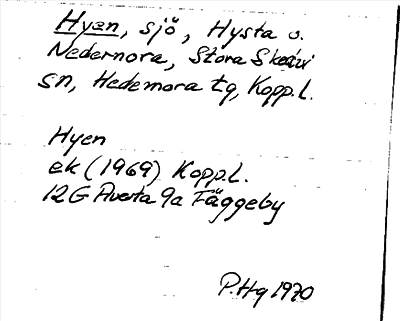 Hyen, sjö, Hysta o.
Nedernora, Stora Skedvi
sn, Hedemora tg, Kopp.l.
Hyen
ek (1969) Kopp.l.
12G Avesta 9a Fäggeby
P.Hg 1970